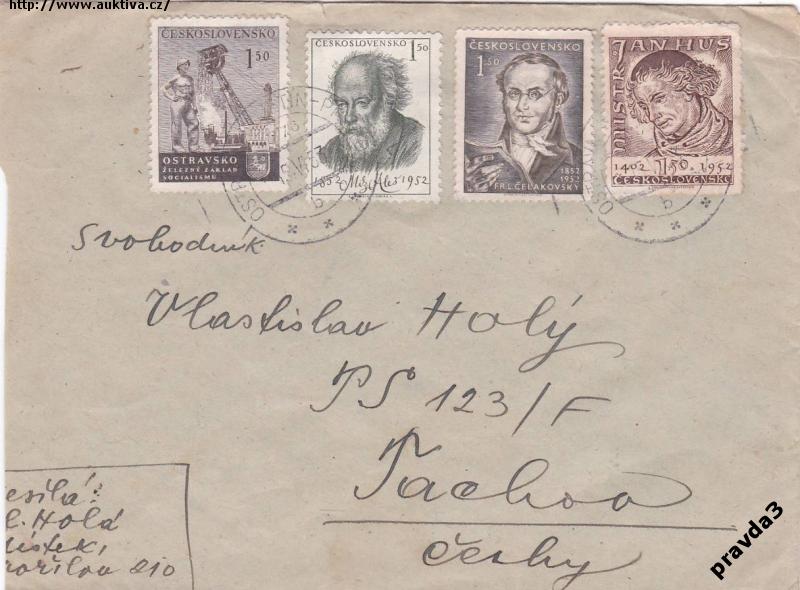 http://www.auktiva.cz/
ČESKOSLOVENSKO
1 50
OSTRAVSKO
ŽELEZNÝ ZÁKLAD
SOCIALISMU
ČESKOSLOVENSKO
1 50
1852 Mik. Aleš 1952
ČESKOSLOVENSKO
1 50
1852
1952
FR. L. ČELAKOVSKÝ
MISTR JAN HUS
1402 1.50 1952
ČESKOSLOVENSKO
b
b
Svobodník
Vlastislav Holý
PS 123/F
Tachov
Čechy
esílá:
l. Holá
ístek,
210
pravda3